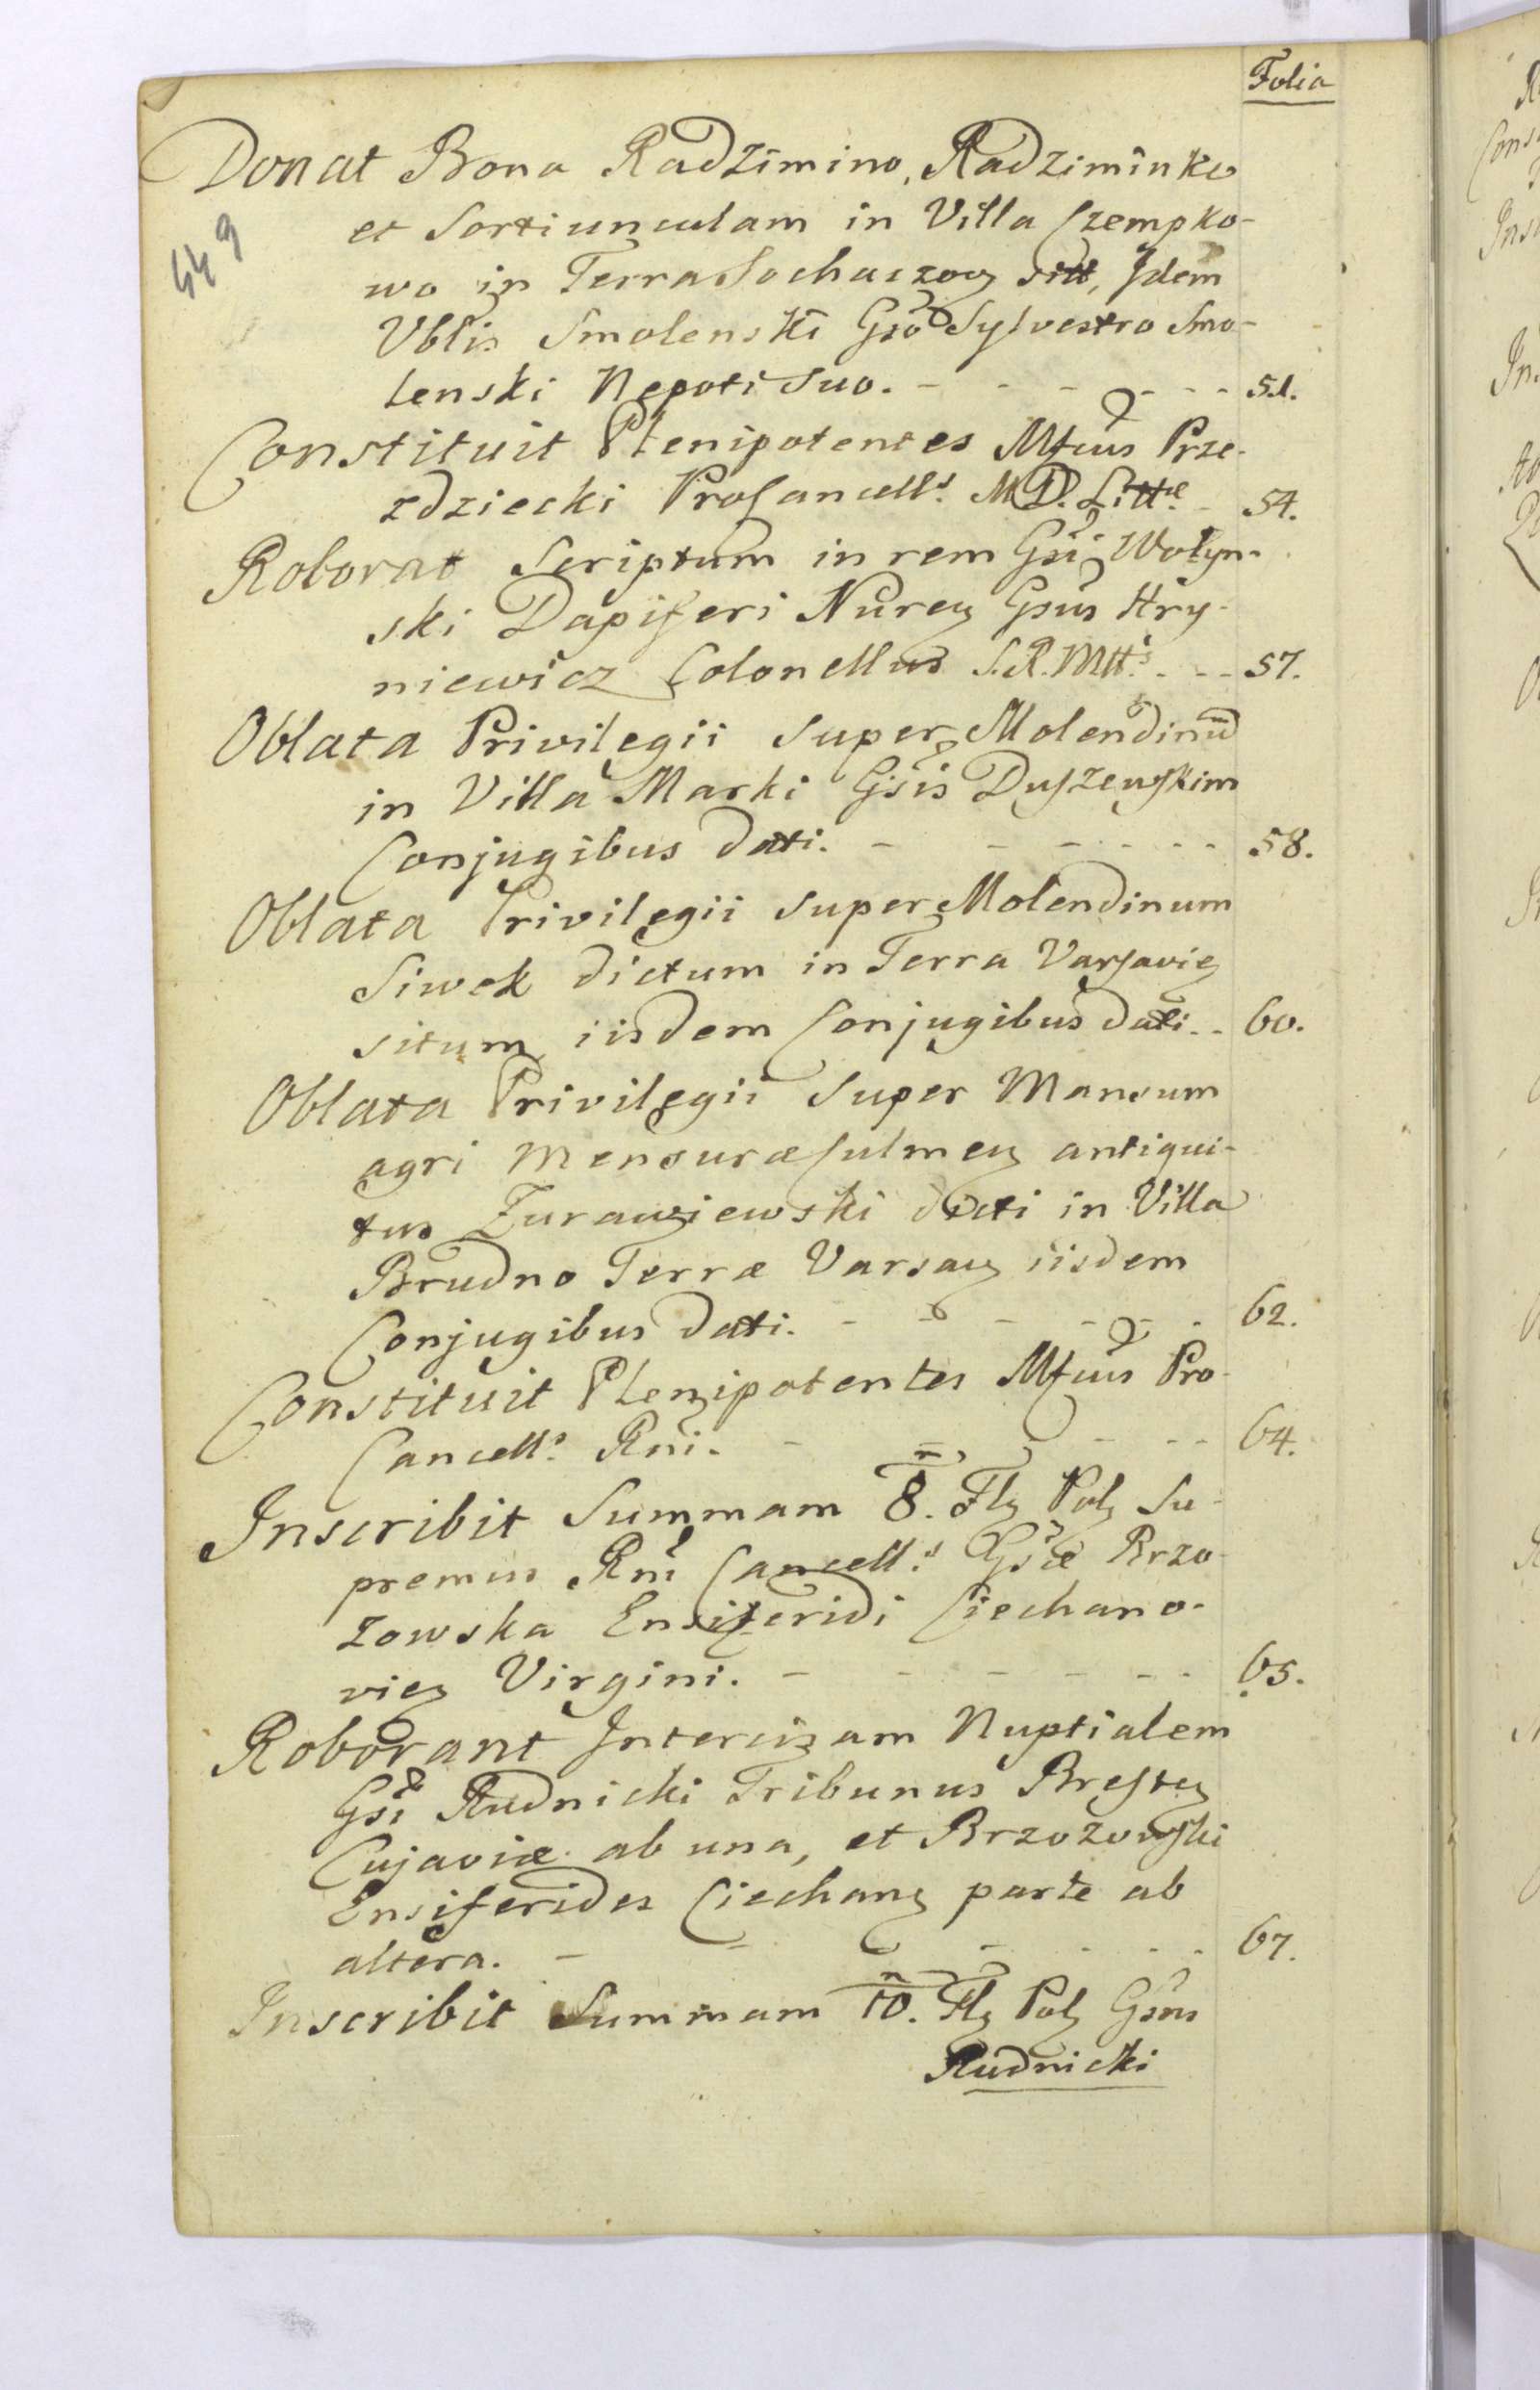 Folia
Donat Bona Radzimino, Radziminko
449
et Sortiunculam in Villa Czempko-
wo in Terra Sochaczov sitt, Idem
Vblis Smolenski Gso Sylvestro Smo-
lenski Nepoti suo. - - - - - - 51.
Constituit Plenipotentes Mfcus Prze-
zdziecki ProCancells. M.D. Littæ. - 54.
Roborat Scriptum in rem Gsi Wołyn-
ski Dapiferi Nuren Gsus Hry-
niewicz Colonellus S.R.Mttis. - - - 57.
Oblata Privilegii super Molendinu
in Villa Marki Gsis Duszewskim
Conjugibus dati. - - - - - - 58.
Oblata Privilegii super Molendinum
Siwek dictum in Terra Varsavien
situm iisdem Conjugibus dati. - - 60.
Oblata Privilegii super Mansum
agri Mensuræ Culmen antiqui-
tus Zurawiewski dicti in Villa
Brudno Terræ Varsav iisdem
Conjugibus dati. - - - - - - 62.
Constituit Plenipotentes Mfcus Pro-
Cancells. Rni. - - - - - - 64.
Inscribit Summam 8. Fl Pol Su-
premus Rni Cancells. Gsæ Brzo-
zowska Ensiferidi Ciechano-
vien Virgini. - - - - - - 65.
Roborant Intercizam Nuptialem
Gsi Rudnicki Tribunus Bresten
Cujaviæ ab una, et Brzozowski
Ensiferides Ciechan parte ab
altera. - - - - - - 67.
Inscribit Summam 10. Fl Pol Gsus
Rudnicki